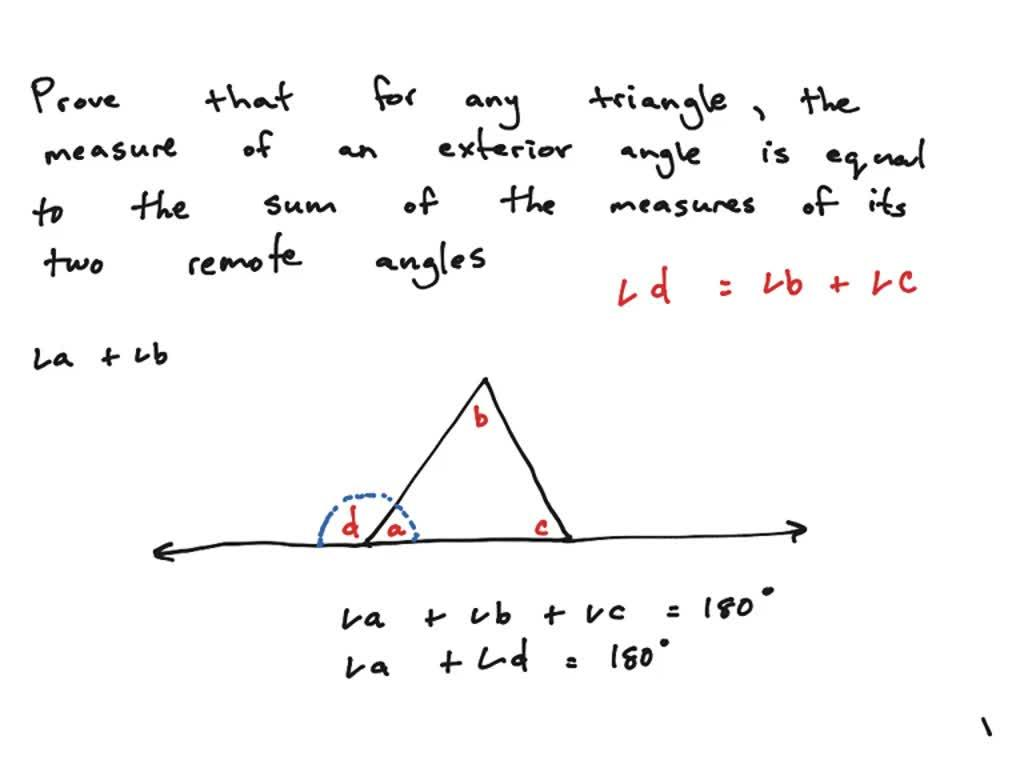 Prove that for any triangle, the
measure of an exterior angle is equal
to the sum of the measures of its
two remote angles
∠d = ∠b + ∠c
∠a + ∠b
b
d a c
∠a + ∠b + ∠c = 180°
∠a + ∠d = 180°